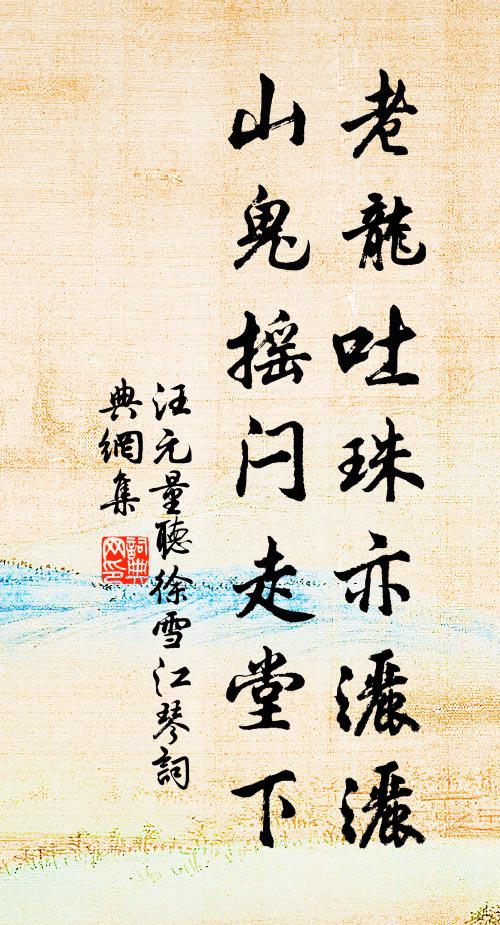 老龍吐珠亦灑灑
山鬼摇门走堂下
汪元量聽徐雪江琴詞
典網集
詞典
网印